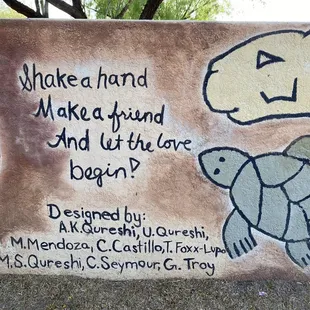 Shake a hand
Make a friend
And let the love
begin!
Designed by:
A.K.Qureshi, U.Qureshi,
M.Mendoza, C.Castillo, T. Foxx-Lupo
M.S.Qureshi, C.Seymour, G. Troy